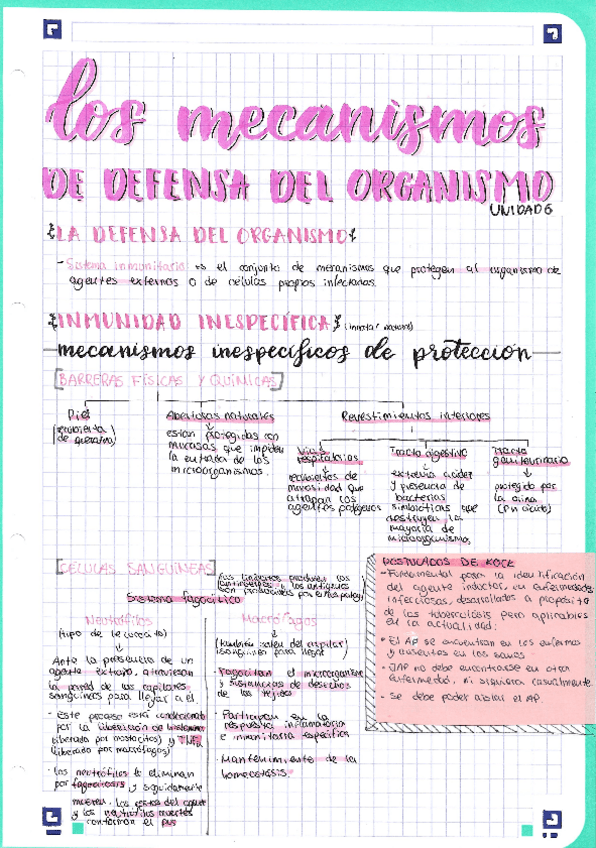 los mecanismos
DE DEFENSA DEL ORGANISMO
UNIDAD 6
{LA DEFENSA DEL ORGANISMO}
- Sistema inmunitario es el conjunto de mecanismos que protegen al organismo de
agentes externos o de células propias infectadas.
{INMUNIDAD INESPECÍFICA} (innata / natural)
mecanismos inespecíficos de protección
[BARRERAS FÍSICAS Y QUÍMICAS]
Piel
(cubierta
de queratina)
Aberturas naturales
están protegidas con
mucosas que impiden
la entrada de los
microorganismos.
Revestimientos interiores
Vías
respiratorias
recubiertos de
mucosidad que
atrapan los
agentes patógenos
Tracto digestivo
extrema acidez
y presencia de
bacterias
simbióticas que
destruyen la
mayoría de
microorganismos.
Tracto
genitourinario
protegido por
la orina
(pH ácido)
[CÉLULAS SANGUÍNEAS]
Sistema fagocítico
Neutrófilos
(tipo de leucocito)
Ante la presencia de un
agente extraño, atraviesan
la pared de los capilares
sanguíneos para llegar a él.
- Este proceso está condicionado
por la liberación de histamina
(liberada por mastocitos) y TNF
(liberado por macrófagos)
- Los neutrófilos lo eliminan
por fagocitosis y seguidamente
mueren. Los restos del agente
y los neutrófilos muertos
conforman el pus
Macrófagos
(también salen del capilar
sanguíneo para llegar)
- Fagocitan el microorganismo
y sustancias de desechos
de los tejidos
- Participan en la
respuesta inflamatoria
e inmunitaria específica
- Mantenimiento de la
homeostasis.
POSTULADOS DE KOCK
- Fundamental para la identificación
del agente inductor, en enfermedades
infecciosas, desarrollados a propósito
de la tuberculosis pero aplicables
en la actualidad:
• El AP se encuentran en los enfermos
y ausentes en los sanos.
- AP no debe encontrarse en otra
enfermedad, ni siquiera casualmente.
- Se debe poder aislar el AP.